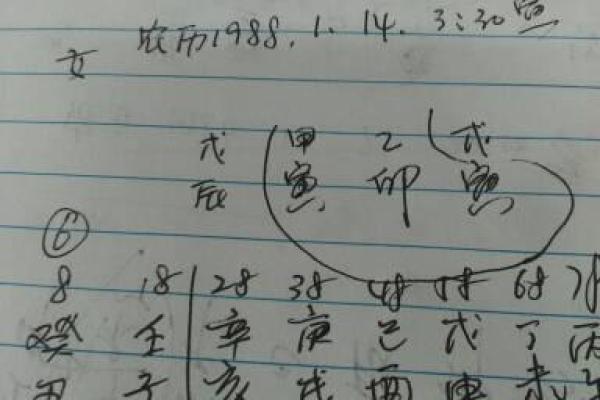 农历1988.1.14.3:30寅
女
戊 甲 乙 戊
辰 寅 卯 寅
6
8 18 28 38 48 58 68 78
癸 壬 辛 庚 己 戊 丁 丙
丑 子 亥 戌 酉 申 未 午